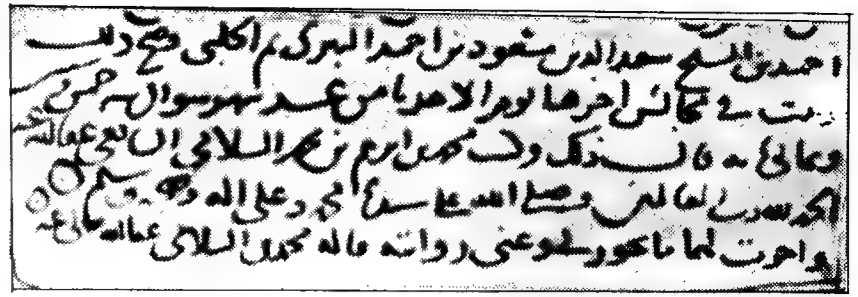 احمد بن الشيخ سعد الدين مسعود بن احمد البركي ثم الحلبي وصح ذلك
في مجالس اخرها يوم الاحد ثامن شهر شوال سنة خمس
قال ذلك وكتب محمد بن ابرهيم بن محمد السلامي عفا الله عنه
الحمد لله رب العالمين وصلى الله على سيدنا محمد وعلى اله وصحبه وسلم
واجزت لهما ما يجوز لي وعني روايته قاله محمد السلامي عفا الله تعالى عنه